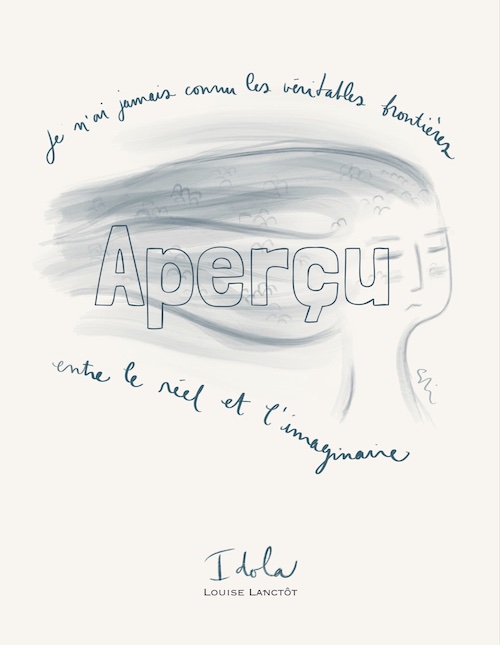 Je n'ai jamais connu les véritables frontières
Aperçu
entre le réel et l'imaginaire
Idola
Louise Lanctôt